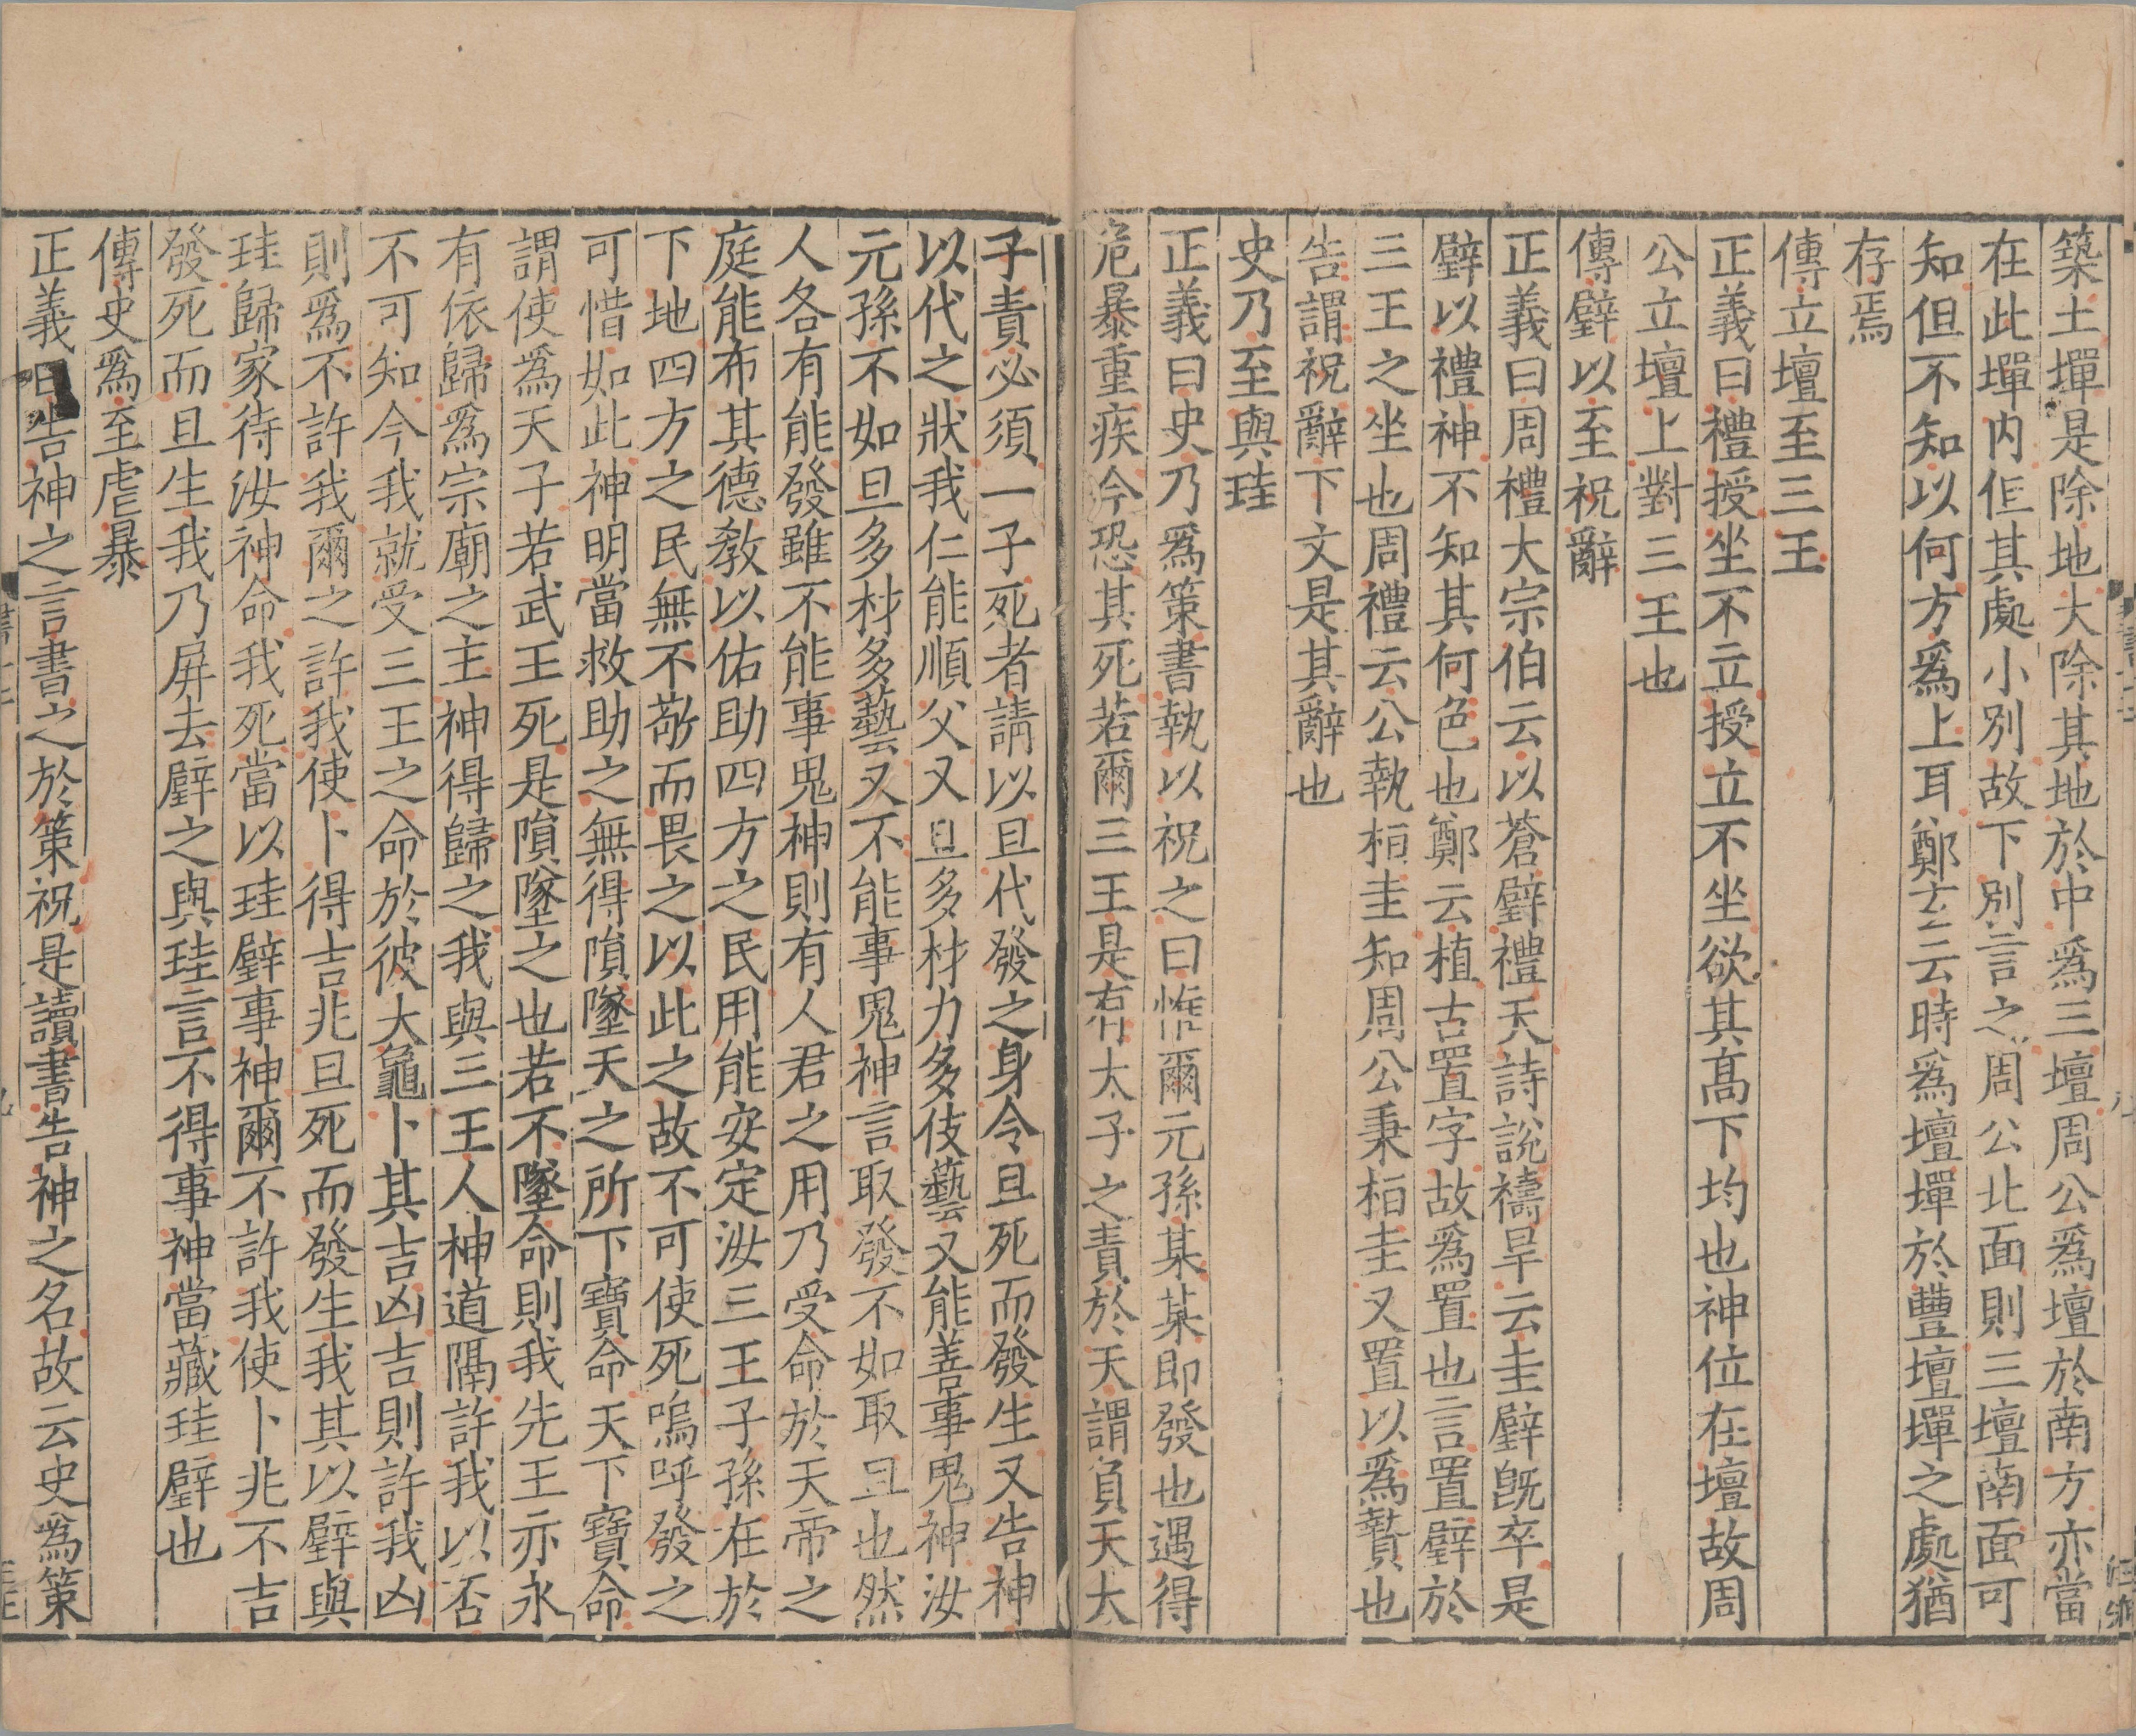 築土墠是除地大除其地於中爲三壇周公爲壇於南方亦當
在此墠内但其處小別故下別言之周公北面則三壇南面可
知但不知以何方爲上耳鄭玄云時爲壇墠於豐壇墠之處猶
存焉
傳立壇至三王
正義曰禮授坐不立授立不坐欲其髙下均也神位在壇故周
公立壇上對三王也
傳璧以至祝辭
正義曰周禮大宗伯云以蒼璧禮天詩説禱旱云圭璧既卒是
璧以禮神不知其何色也鄭云植古置字故爲置也言置璧於
三王之坐也周禮云公執桓圭知周公秉桓圭又置以爲贄也
告謂祝辭下文是其辭也
史乃至與珪
正義曰史乃爲策書執以祝之曰惟爾元孫某某即發也遇得
危暴重疾今恐其死若爾三王是有太子之責於天謂負天大
子責必須一子死者請以旦代發之身令旦死而發生又告神
以代之狀我仁能順父又旦多材力多伎藝又能善事鬼神汝
元孫不如旦多材多藝又不能事鬼神言取發不如取旦也然
人各有能發雖不能事鬼神則有人君之用乃受命於天帝之
庭能布其德教以佑助四方之民用能安定汝三王子孫在於
下地四方之民無不敬而畏之以此之故不可使死嗚呼發之
可惜如此神明當救助之無得隕墜天之所下寶命天下寶命
謂使爲天子若武王死是隕墜之也若不墜命則我先王亦永
有依歸爲宗廟之主神得歸之我與三王人神道隔許我以否
不可知今我就受三王之命於彼大龜卜其吉凶吉則許我凶
則爲不許我爾之許我使卜得吉兆旦死而發生我其以璧與
珪歸家待汝神命我死當以珪璧事神爾不許我使卜兆不吉
發死而旦生我乃屏去璧之與珪言不得事神當藏珪璧也
傳史爲至虐暴
正義曰告神之言書之於策祝是讀書告神之名故云史爲策